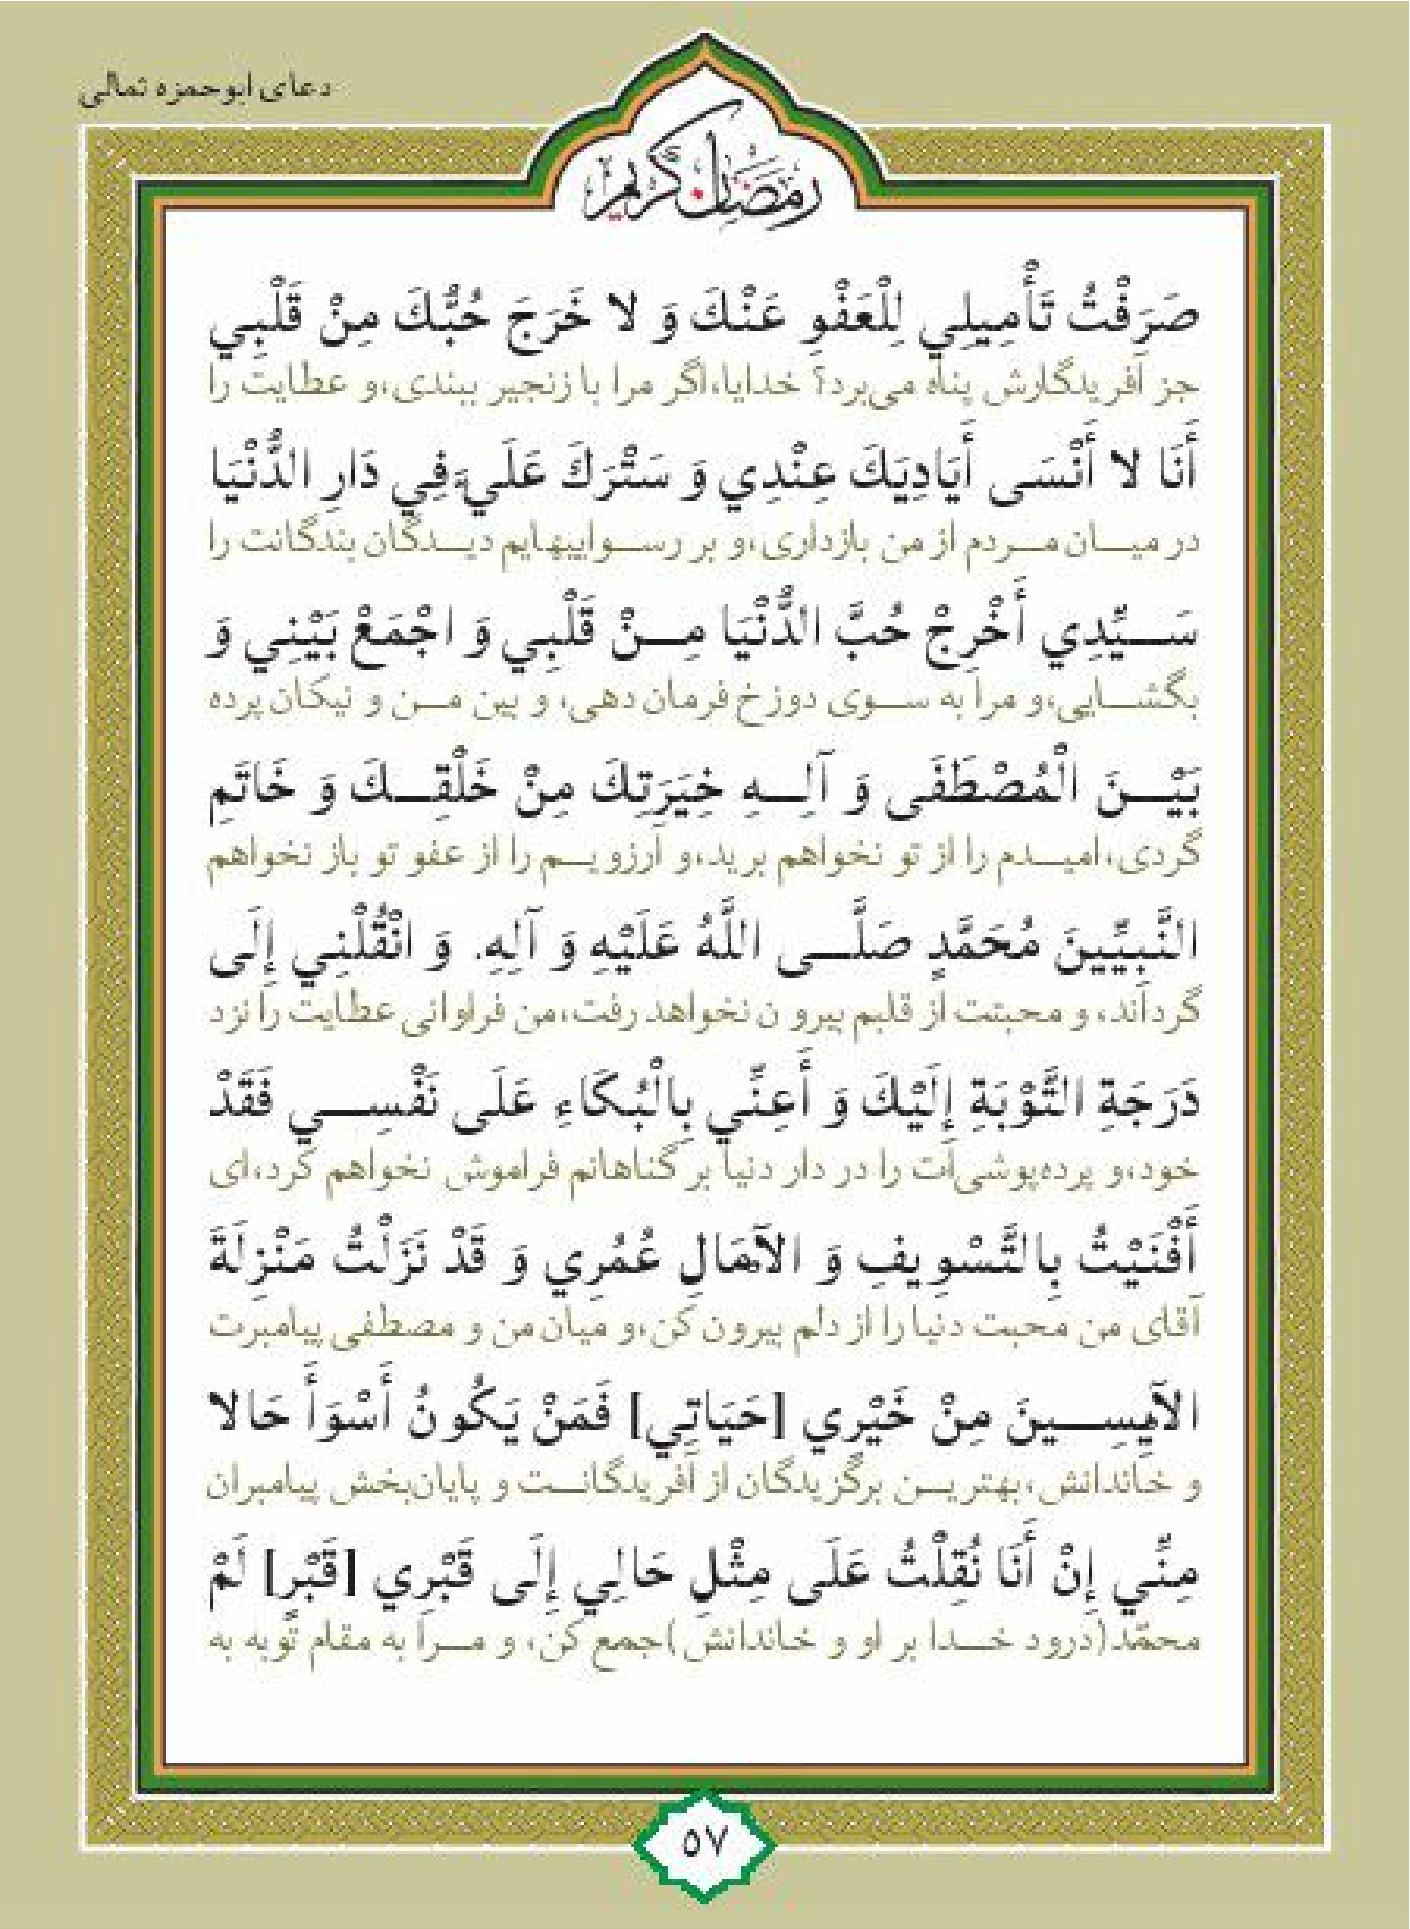 دعای ابوحمزه ثمالی
رمضان كريم
صَرَفْتُ تَأْمِيلِي لِلْعَفْوِ عَنْكَ وَ لا خَرَجَ حُبُّكَ مِنْ قَلْبِي
جز آفریدگارش پناه می‌برد؟ خدایا،اگر مرا با زنجیر ببندی،و عطایت را
أَنَا لا أَنْسَى أَيَادِيَكَ عِنْدِي وَ سَتْرَكَ عَلَيَّ فِي دَارِ الدُّنْيَا
در میــان مــردم از من بازداری،و بر رســواییهایم دیــدگان بندگانت را
سَــيِّدِي أَخْرِجْ حُبَّ الدُّنْيَا مِــنْ قَلْبِي وَ اجْمَعْ بَيْنِي وَ
بگشــایی،و مرا به ســوی دوزخ فرمان دهی، و بین مــن و نیکان پرده
بَيْــنَ الْمُصْطَفَى وَ آلِــهِ خِيَرَتِكَ مِنْ خَلْقِــكَ وَ خَاتَمِ
گردی،امیــدم را از تو نخواهم برید،و آرزویــم را از عفو تو باز نخواهم
النَّبِيِّينَ مُحَمَّدٍ صَلَّــى اللَّهُ عَلَيْهِ وَ آلِهِ. وَ انْقُلْنِي إِلَى
گرداند، و محبتت از قلبم بیرون نخواهد رفت،من فراوانی عطایت را نزد
دَرَجَةِ التَّوْبَةِ إِلَيْكَ وَ أَعِنِّي بِالْبُكَاءِ عَلَى نَفْسِــي فَقَدْ
خود،و پرده‌پوشی‌ات را در دار دنیا بر گناهانم فراموش نخواهم کرد،ای
أَفْنَيْتُ بِالتَّسْوِيفِ وَ الآمَالِ عُمُرِي وَ قَدْ نَزَلْتُ مَنْزِلَةَ
آقای من محبت دنیا را از دلم بیرون کن،و میان من و مصطفی پیامبرت
الآيِسِــينَ مِنْ خَيْرِي [حَيَاتِي] فَمَنْ يَكُونُ أَسْوَأَ حَالا
و خاندانش،بهتریــن برگزیدگان از آفریدگانــت و پایان‌بخش پیامبران
مِنِّي إِنْ أَنَا نُقِلْتُ عَلَى مِثْلِ حَالِي إِلَى قَبْرِي [قَبْرٍ] لَمْ
محمّد(درود خــدا بر او و خاندانش)جمع کن، و مــرا به مقام توبه به
۵۷